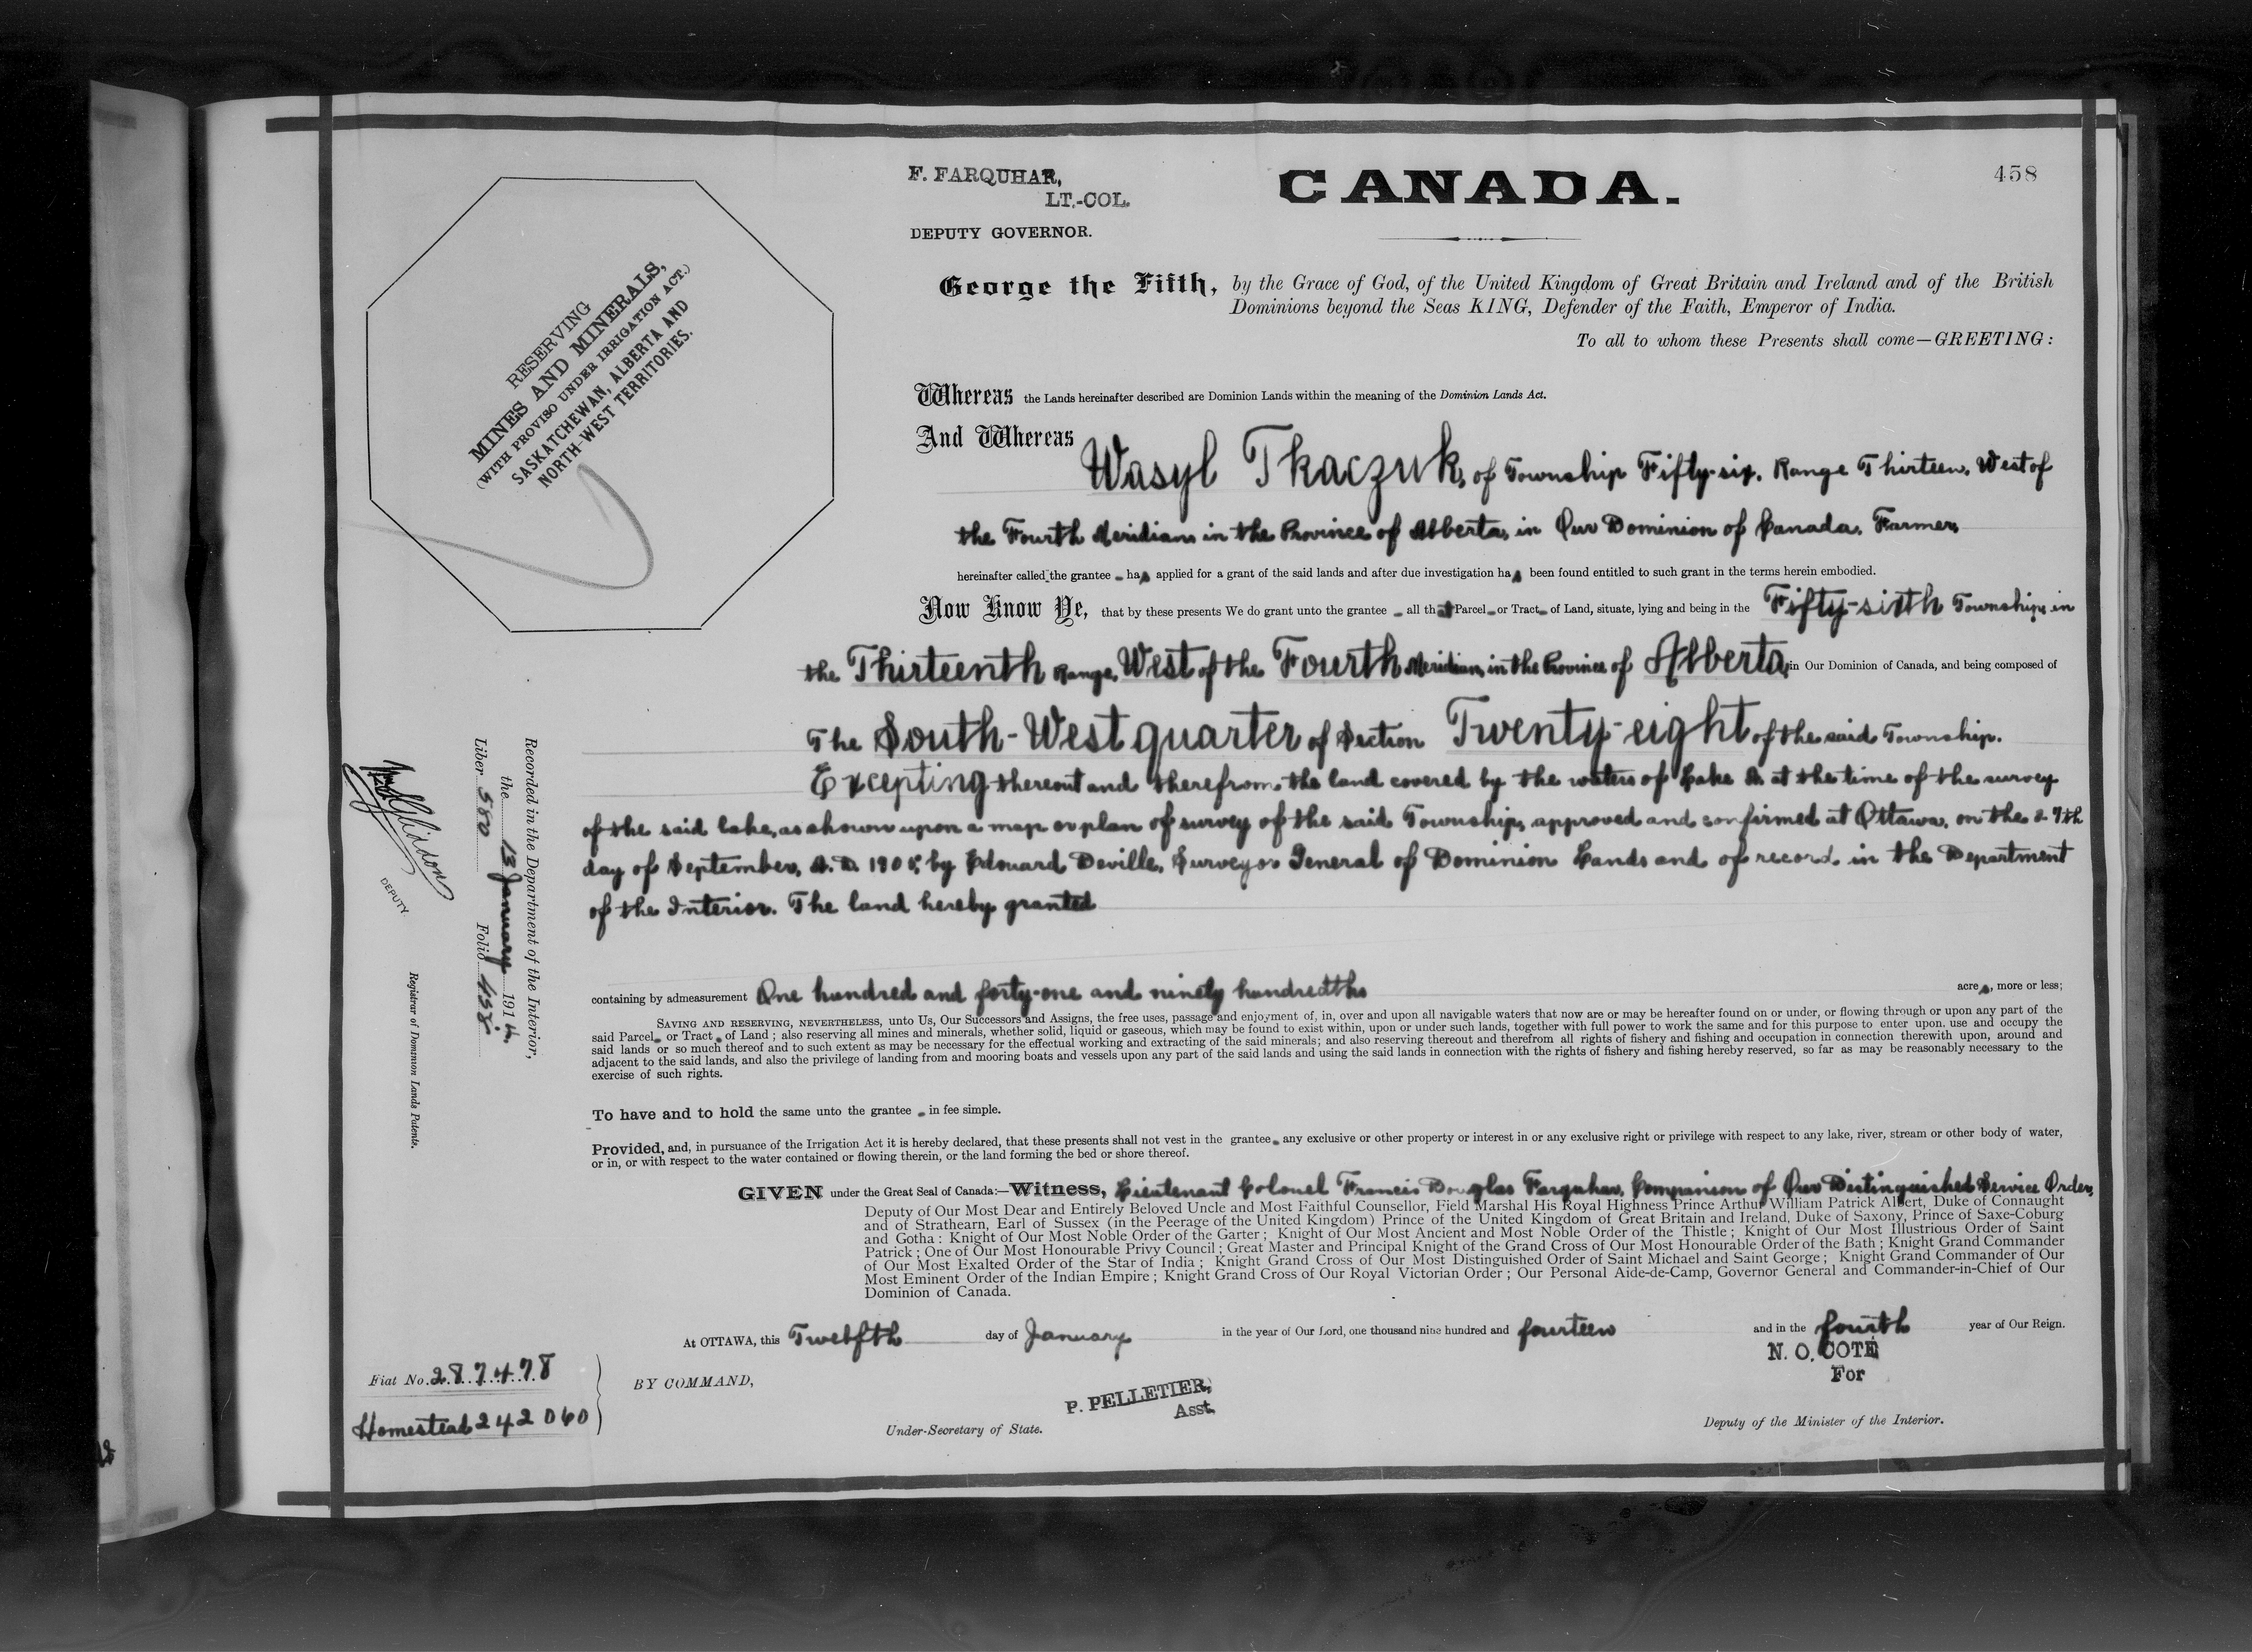 458
F. FARQUHAR,
LT.-COL.
DEPUTY GOVERNOR.
CANADA.
George the Fifth, by the Grace of God, of the United Kingdom of Great Britain and Ireland and of the British
Dominions beyond the Seas KING, Defender of the Faith, Emperor of India.
To all to whom these Presents shall come—GREETING:
RESERVING
MINES AND MINERALS,
(WITH PROVISO UNDER IRRIGATION ACT.)
SASKATCHEWAN, ALBERTA AND
NORTH-WEST TERRITORIES.
Whereas the Lands hereinafter described are Dominion Lands within the meaning of the Dominion Lands Act.
And Whereas Wasyl Tkaczuk, of Township Fifty-six, Range Thirteen, West of
the Fourth Meridian in the Province of Alberta, in Our Dominion of Canada, Farmer,
hereinafter called the grantee has applied for a grant of the said lands and after due investigation has been found entitled to such grant in the terms herein embodied.
Now Know Ye, that by these presents We do grant unto the grantee all that Parcel or Tract of Land, situate, lying and being in the Fifty-sixth Township, in
the Thirteenth Range, West of the Fourth Meridian, in the Province of Alberta, in Our Dominion of Canada, and being composed of
The South-West quarter of Section Twenty-eight of the said Township.
Excepting thereout and therefrom the land covered by the waters of Lake at the time of the survey
of the said lake, as shown upon a map or plan of survey of the said Township, approved and confirmed at Ottawa, on the 27th
day of September, A.D. 1905, by Edouard Deville, Surveyor General of Dominion Lands and of record in the Department
of the Interior. The land hereby granted
containing by admeasurement One hundred and forty-one and ninety hundredths acres, more or less;
SAVING AND RESERVING, NEVERTHELESS, unto Us, Our Successors and Assigns, the free uses, passage and enjoyment of, in, over and upon all navigable waters that now are or may be hereafter found on or under, or flowing through or upon any part of the
said Parcel or Tract of Land; also reserving all mines and minerals, whether solid, liquid or gaseous, which may be found to exist within, upon or under such lands, together with full power to work the same and for this purpose to enter upon. use and occupy the
said lands or so much thereof and to such extent as may be necessary for the effectual working and extracting of the said minerals; and also reserving thereout and therefrom all rights of fishery and fishing and occupation in connection therewith upon, around and
adjacent to the said lands, and also the privilege of landing from and mooring boats and vessels upon any part of the said lands and using the said lands in connection with the rights of fishery and fishing hereby reserved, so far as may be reasonably necessary to the
exercise of such rights.
To have and to hold the same unto the grantee in fee simple.
Provided, and, in pursuance of the Irrigation Act it is hereby declared, that these presents shall not vest in the grantee any exclusive or other property or interest in or any exclusive right or privilege with respect to any lake, river, stream or other body of water,
or in, or with respect to the water contained or flowing therein, or the land forming the bed or shore thereof.
GIVEN under the Great Seal of Canada:—Witness, Lieutenant Colonel Francis Douglas Farquhar, Companion of Our Distinguished Service Order,
Deputy of Our Most Dear and Entirely Beloved Uncle and Most Faithful Counsellor, Field Marshal His Royal Highness Prince Arthur William Patrick Albert, Duke of Connaught
and of Strathearn, Earl of Sussex (in the Peerage of the United Kingdom) Prince of the United Kingdom of Great Britain and Ireland, Duke of Saxony, Prince of Saxe-Coburg
and Gotha: Knight of Our Most Noble Order of the Garter; Knight of Our Most Ancient and Most Noble Order of the Thistle; Knight of Our Most Illustrious Order of Saint
Patrick; One of Our Most Honourable Privy Council; Great Master and Principal Knight of the Grand Cross of Our Most Honourable Order of the Bath; Knight Grand Commander
of Our Most Exalted Order of the Star of India; Knight Grand Cross of Our Most Distinguished Order of Saint Michael and Saint George; Knight Grand Commander of Our
Most Eminent Order of the Indian Empire; Knight Grand Cross of Our Royal Victorian Order; Our Personal Aide-de-Camp, Governor General and Commander-in-Chief of Our
Dominion of Canada.
At OTTAWA, this Twelfth day of January in the year of Our Lord, one thousand nine hundred and fourteen and in the fourth year of Our Reign.
N. O. COTÉ
For
Deputy of the Minister of the Interior.
BY COMMAND,
P. PELLETIER,
Asst.
Under-Secretary of State.
Fiat No. 287478
Homestead 242060
Recorded in the Department of the Interior,
the 13 January 1914,
Liber 580 Folio 458.
DEPUTY.
Registrar of Dominion Lands Patents.